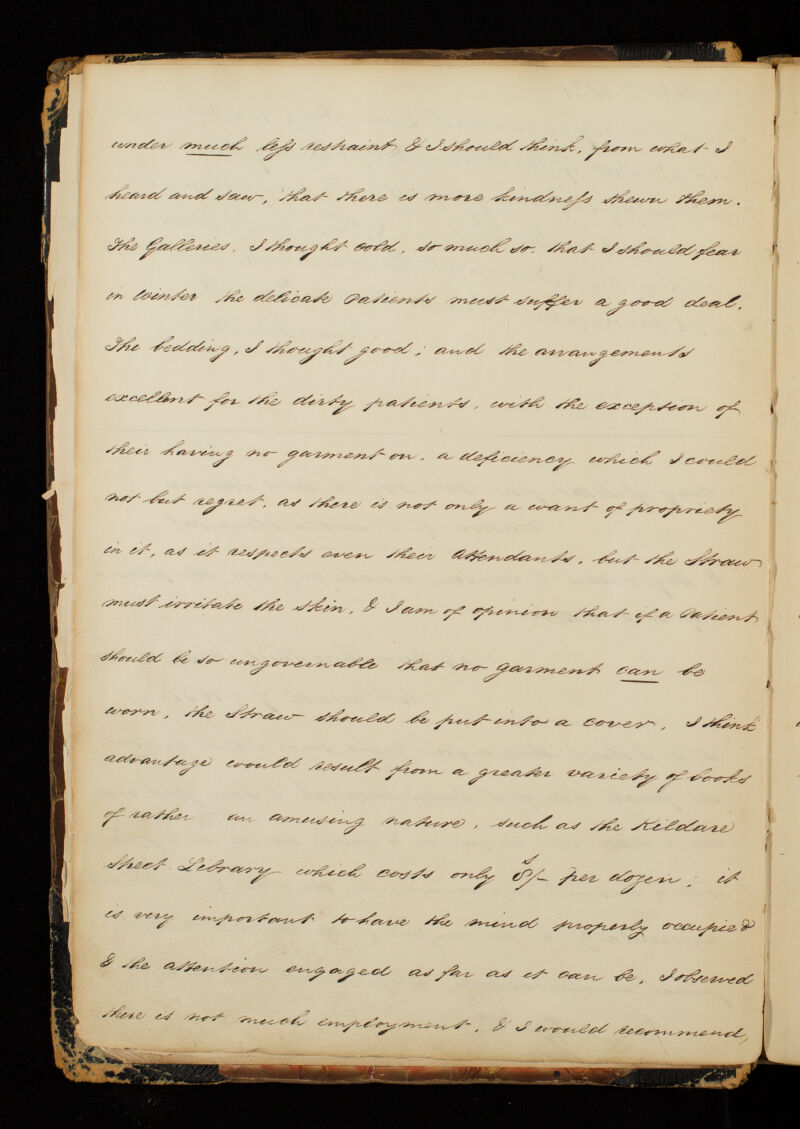 under much less restraint & I should think, from what I
heard and saw, that there is more kindness shewn them.
The Galleries, I thought cold, so much so, that I should fear
in Winter the delicate Patients must suffer a good deal.
The bedding, I thought good; and the arrangements
excellent for the dirty patients, with the exception of
their having no garment on, a deficiency which I could
not but regret, as there is not only a want of propriety
in it, as it respects even their Attendants, but the Straw
must irritate the skin, & I am of opinion that if a Patient
should be so ungovernable that no garment can be
worn, the Straw should be put into a cover, I think
advantage would result from a greater variety of books
of rather an amusing nature, such as the Kildare
Street Library which costs only 8/- per dozen; it
is very important to have the mind properly occupied
& the attention engaged as far as it can be, I observed
there is not much employment, & I would recommend,